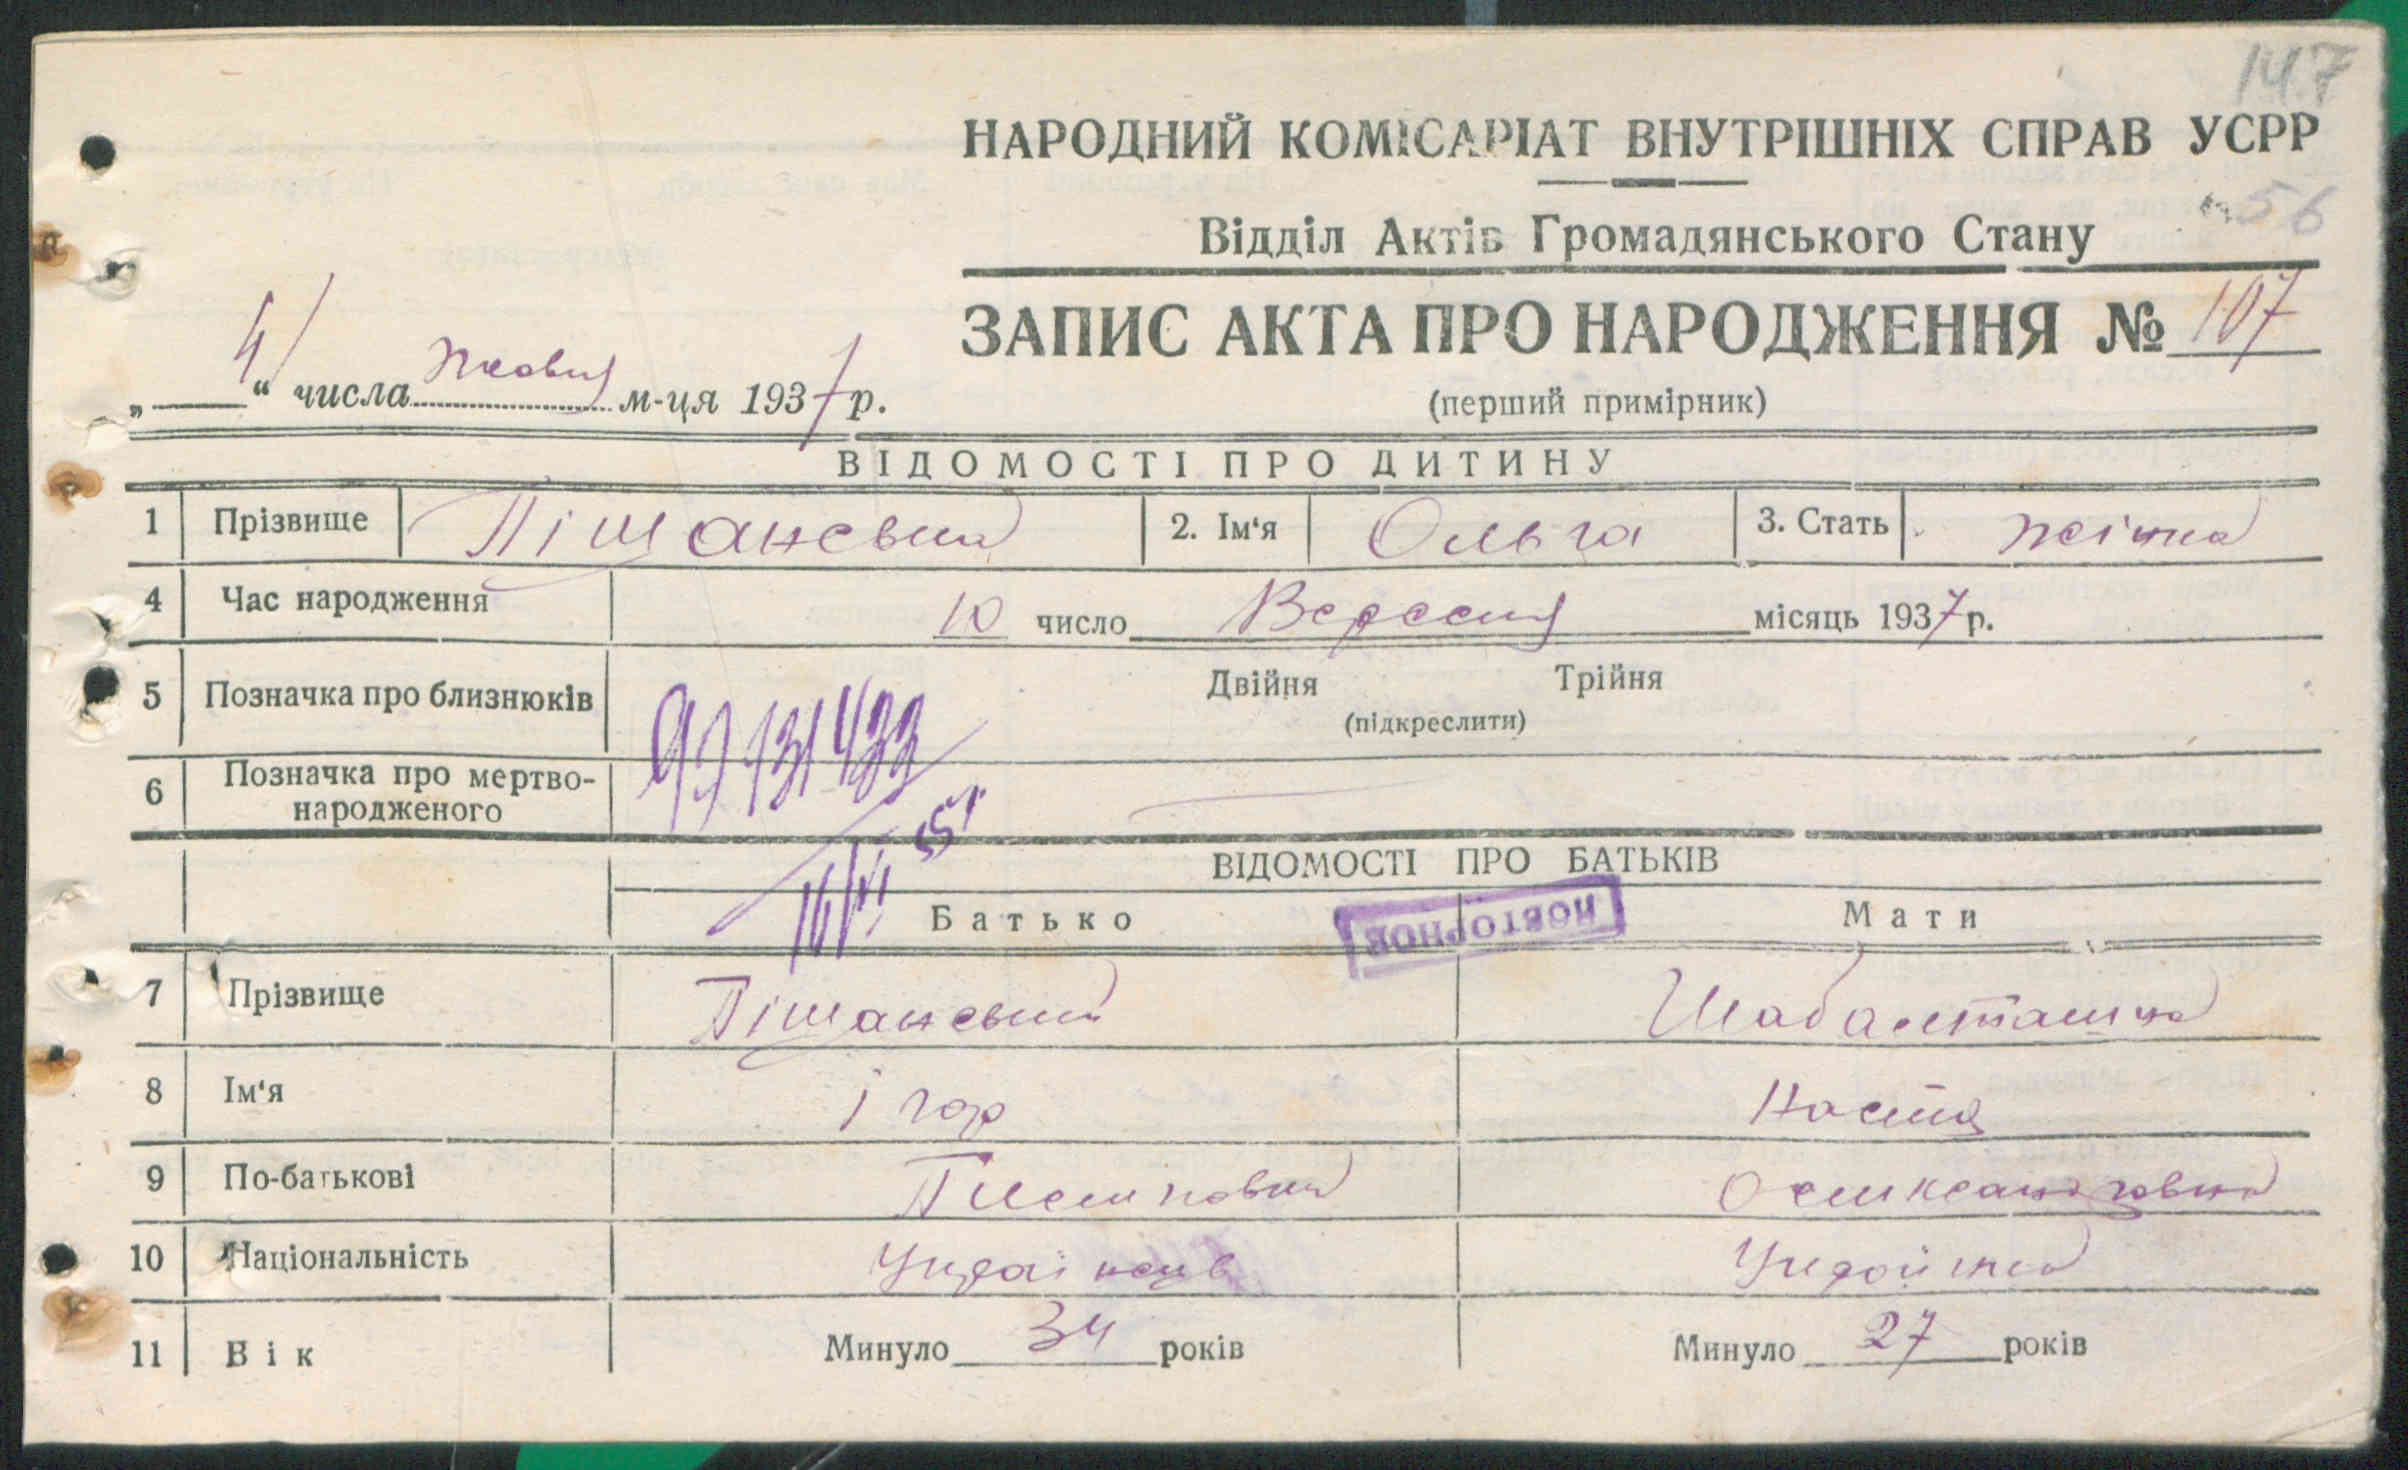 147
НАРОДНИЙ КОМІСАРІАТ ВНУТРІШНІХ СПРАВ УСРР
56
Відділ Актів Громадянського Стану
ЗАПИС АКТА ПРО НАРОДЖЕННЯ № 107
„4“ числа жовтня м-ця 1937 р.
(перший примірник)
ВІДОМОСТІ ПРО ДИТИНУ
1 Прізвище Піщанська 2. Ім‘я Ольга 3. Стать жіноча
4 Час народження 10 число Вересня місяць 1937 р.
5 Позначка про близнюків Двійня Трійня
(підкреслити)
6 Позначка про мертво-
народженого
ВІДОМОСТІ ПРО БАТЬКІВ
Батько Мати
ПОВТОРНОЕ
7 Прізвище Піщанський
8 Ім‘я Ігор Настя
9 По-батькові Пилипович Олександровна
10 Національність Українець Українка
11 Вік Минуло 34 років Минуло 27 років